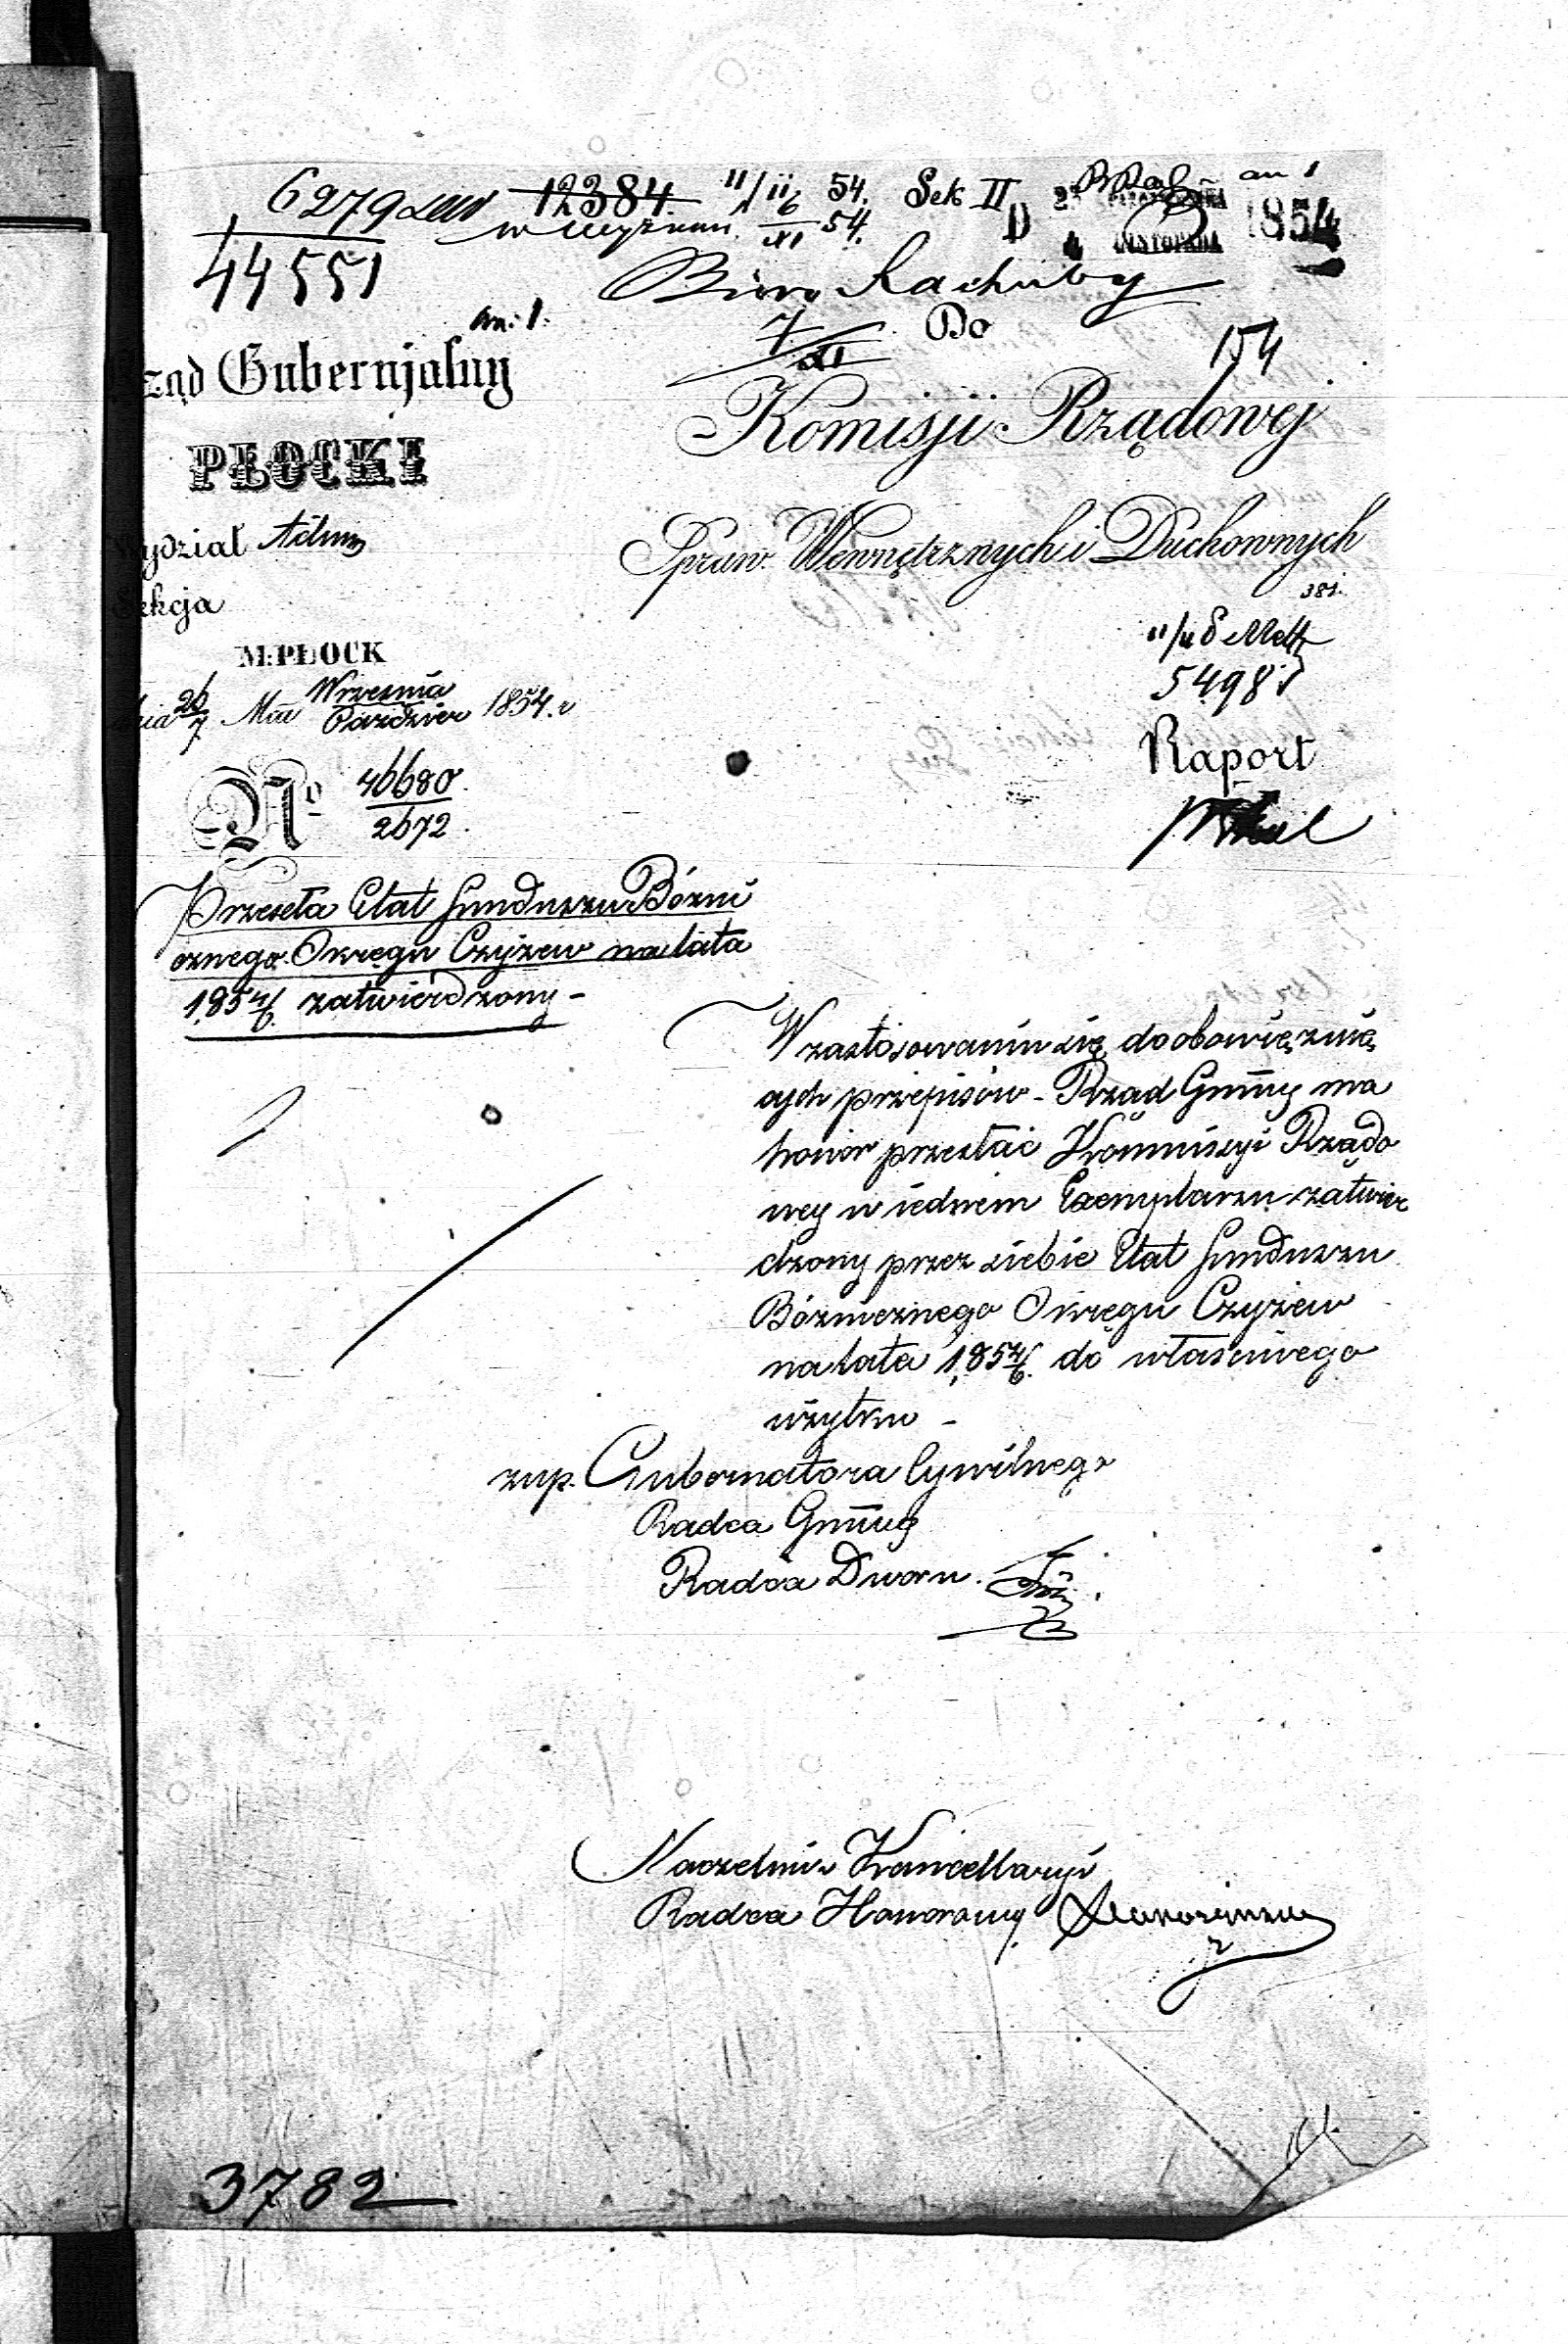 6279
12384. 11/11 54. Sek II
6/XI 54.
44551
D 1854
LISTOPADA
an 1
Biuro Rachuby
an: 1.
7/XI
Do
154
ząd Gubernjalny
PŁOCKI
Komisji Rządowej
Spraw Wewnętrznych i Duchownych
ydział Admin
kcja
381.
M: PŁOCK
nia 26/7 Mca Września/Paździer 1854. r
5498
Raport
No 46680/2672.
Przeseła Etat funduszu Bóżni
cznego Okręgu Czyżew na lata
1854/6. zatwierdzony -
W zastosowaniu się do obowięzuię
cych przepisów - Rząd Gnny ma
honor przesłać Kommissyi Rządo
wey w iednem Exemplarzu zatwier
dzony przez siebie Etat funduszu
Bóżnicznego Okręgu Czyżew
na lata 1854/6. do właściwego
użytku -
zup. Gubernatora Cywilnego
Radca Gnny
Radca Dworu.
Naczelnik Kancellaryi
Radca Honorowy
3782